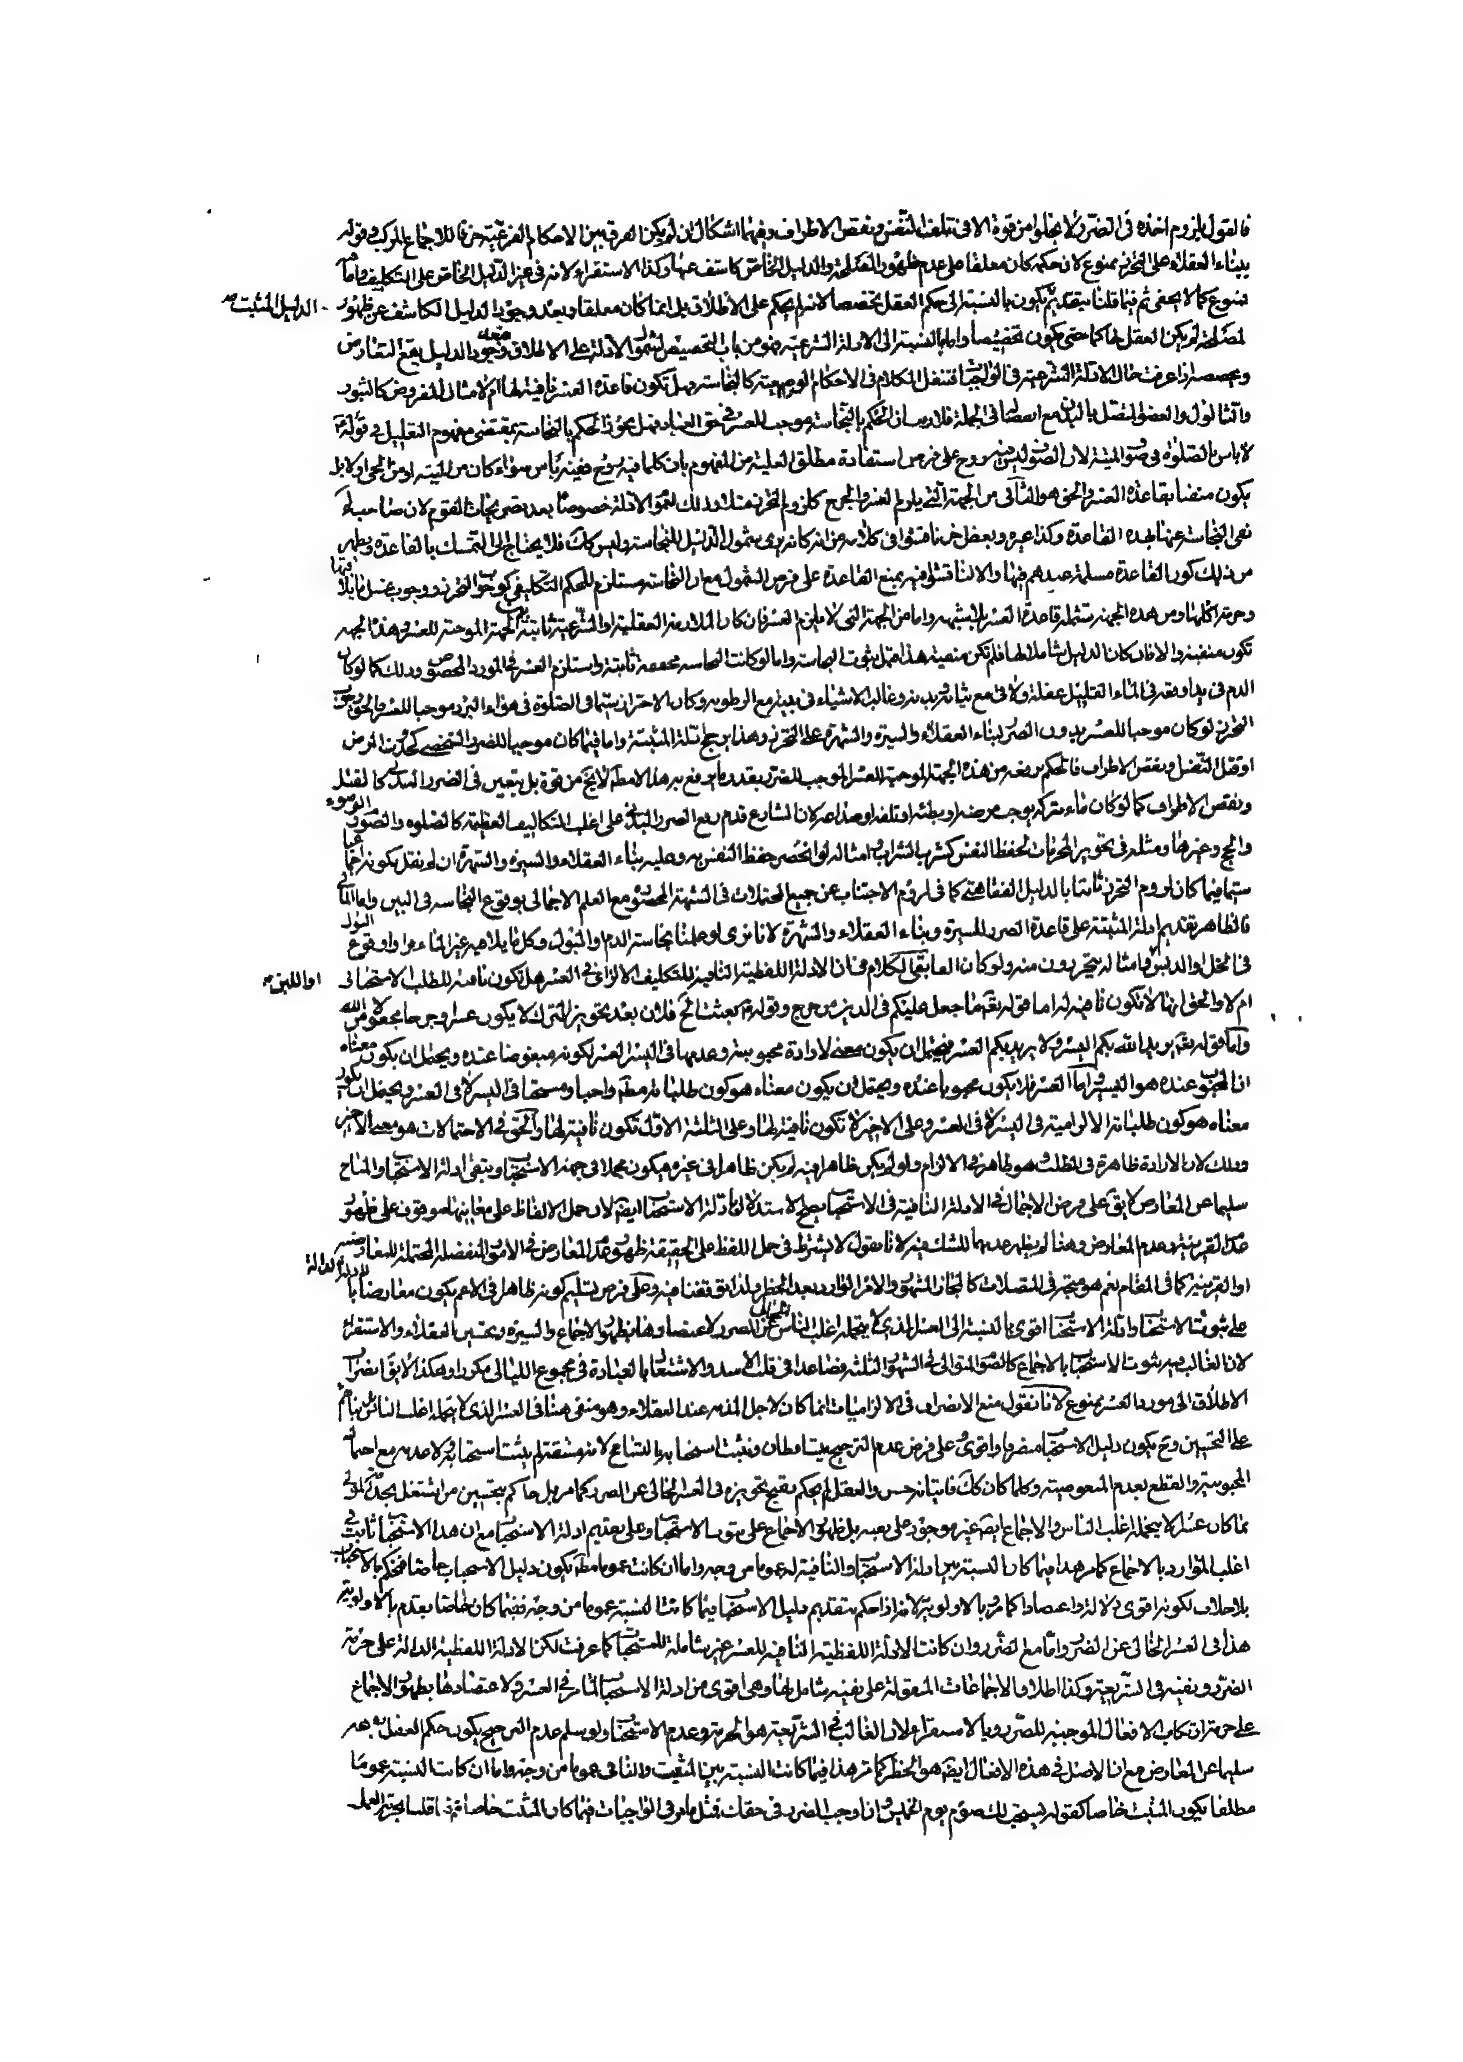 فالقول بلزوم اخذه فى الضرر لا يخلوا من قوة الا فى تلف النفس ونقص الاطراف وفيهما اشكال ان لم يكن الفرق بين الاحكام الفرعية خرقا للاجماع المركب وقوله
ببناء العقلاء على التحرز ممنوع لان حكمه كان معلقا على عدم ظهور المصلحة والدليل الخاص كاشف عنها وكذا الاستقراء لانه فى غير الدليل الخاص على التكليف واما
ممنوع كما لا يخفى ثم فيما قلنا بتقديم يكون بالنسبة الى حكم العقل تخصصا لانه لم يحكم على الاطلاق بل انما كان معلقا وبعد وجود الدليل الكاشف عن ظهور - الدليل المثبت
لمصلحة لم يكن العقل حاكما حتى يكون تخصيصا واما بالنسبة الى الادلة الشرعية فهو من باب التخصيص لشمول الادلة على الاطلاق وجود الدليل يقع التعارض
ويخصصه اذا عرفت حال الادلة الشرعية فى الواجبات فننقل الكلام فى الاحكام الوضعية كالنجاسة وهل تكون قاعدة العسر نافية لها ام لا مثال المفروض كالبثور
والثالول والعضو المتصل بالبدن مع اتصال فى الجملة فلا ريب ان الحكم بالنجاسة موجب للعسر فى حق العباد فهل يجوز الحكم بالنجاسة بمقتضى مفهوم التعليل فى قوله
لا باس بالصلوة فى صوف الميتة لان الصوف ليس فيه روح على فرض استفادة مطلق العلية من المفهوم بان كلما فيه روح ففيه باس سواء كان من الميتة او من الحى او لا بل
يكون منفيا بقاعدة العسر والحق هو الثانى من الجهة التى يلزم العسر والحرج كلزوم التحرز
نفى النجاسة عنها لهذه القاعدة وكذا غيره وبعض من ناقشوا فى كلامه من انه كانه يرى شمول الدليل للنجاسة وليس كك فلا يحتاج الى التمسك بالقاعدة ويظهر
من ذلك كون القاعدة مسلمة عندهم فيها والا لناقشوا فيه بمنع القاعدة على فرض الشمول مع ان النجاسة مستلزم للحكم التكليفى كوجوب التحرز ووجوب غسل ما يلا فيها
وحرمة اكلها ومن هذه الجهة تشمله قاعدة العسر بلا شبهة واما من الجهة التى لا يلزم العسر فان كان الملازمة العقلية او الشرعية ثابتة بين الجهة الموجبة للعسر وهذه الجهة
تكون منفية والا فان كان الدليل شاملا لها فلم تكن منفية هذا قبل ثبوت النجاسة واما لو كانت النجاسة محققة ثابتة واستلزم العسر فى المورد المخصوص وذلك كما لو كان
الدم فى يد او وقع فى الماء القليل غفلة ولاقى مع ثيابه وبدنه وغالب الاشياء فى بيته مع الرطوبة وكان الاحتراز سيما فى الصلوة فى هواء البرد موجبا للعسر فالحق وجوب
التحرز لو كان موجبا للعسر بدون الضرر لبناء العقلاء والسيرة والشهرة على التحرز وهذا يرجح ادلة المثبتة واما فيما كان موجبا للضرر الشخصى كحدوث المرض
او قتل النفس ونقص الاطراف فالحكم برفعه من هذه الجهة الموجبة للعسر الموجب للضرر بعد
ونقص الاطراف كما لو كان ماء متركه يوجب مرضه او بطئه او تلفه او ضداعه لان الشارع قدم رفع الضرر البدنى على اغلب التكاليف العظيمة كالصلوة والصوم والوضوء
والحج وغيرها ومثله فى تجويز المحرمات لحفظ النفس كشرب الشراب وامثاله لو انحصر حفظ النفس به وعليه بناء العقلاء والسيرة والشهرة ان لم نقل بكونه اجماعا
سيما فيما كان لزوم التحرز ثابتا بالدليل الفقاهتى كما فى لزوم الاجتناب عن جميع المحتملات فى الشبهة المحصورة مع العلم الاجمالى بوقوع النجاسة فى البين واما الثانى
فالظاهر تقديم ادلة المثبتة على قاعدة الضرر للسيرة وبناء العقلاء والشهرة لانا نرى لو علمنا بنجاسة الدم والبول وكل ما يلاقيه غير الماء مرارا ووقوع البول
فى الخل والدبس وامثاله يتحرزون منه ولو كان العابقى الكلام فى ان الادلة اللفظية النافية للتكليف الالزامى فى العسر هل تكون نافية للطلب الاستحبابى او اللبن
ام لا والحق انها لا تكون نافية له اما قوله تعه ما جعل عليكم فى الدين من حرج وقوله بعثت الخ فلان بعد تجويز الترك لا يكون عسرا وحرجا مجعولا من الله
واما قوله تعه يريد الله بكم اليسر ولا يريد بكم العسر فيحتمل ان يكون معنى الارادة محبوبيته وعدمها فى اليسر العسر لكونه مبغوضا عنده ويحتمل ان يكون معناه
ان المحبوب عنده هو اليسر واما العسر فلا يكون محبوبا عنده ويحتمل ان يكون معناه هو كون طلباته مطه واجبا ومستحبا فى اليسر لا فى العسر ويحتمل ان يكون
معناه هو كون طلباته الالزامية فى اليسر لا فى العسر وعلى الاخير لا تكون نافية لها وعلى الثلثة الاول تكون نافية لها والحق فى الاحتمالات هو معنى الاخير
وذلك لان الارادة ظاهرة فى الطلب وهو ظاهر فى الالزام ولو لم يكن ظاهرا فيه لم يكن ظاهرا فى غيره فيكون مجملا فى جهة الاستحباب ويبقى ادلة الاستحباب والمباح
سليما عن المعارض لا يق على فرض الاجمال فى الادلة النافية فى الاستحباب يصح الاستدلال بادلة الاستحباب ايضه لان حمل الالفاظ على معانيها موقوف على ظهور
عدم القرينية وعدم المعارض وهنا لم يظهر عدمهما للشك فيه لانا نقول لا يشترط فى حمل اللفظ على الحقيقة ظهور عدم المعارض فى الامور المنفصلة المحتملة للمعارضية
او القرينية كما فى المقام نعم هو متجه فى المتصلات كالمجاز المشهور والامر الوارد بعد الحظر ولذا توقفنا فيه وعلى فرض تسليم كونه ظاهرا فى الاعم يكون معارضا بالادلة الدالة
على ثبوت الاستحباب وادلة الاستحباب اقوى بالنسبة الى العسر الذى لا يتحمله اغلب الناس الخالى عن الضرر لاعتضادها بظهور الاجماع والسيرة وتحسين العقلاء والاستقراء
لان الغالب فيه ثبوت الاستحباب بالاجماع كالصوم المتوالى فى الشهور الثلثة فصاعدا فى قلب الاسد والاشتغال بالعبادة فى مجموع الليالى مكررا وهكذا لا يق انصراف
الاطلاق الى مورد العسر ممنوع لانا نقول منع الانصراف فى الالزاميات انما كان لاجل المذمة عند العقلاء وهو منفى هنا فى العسر الذى لا يتحمله اغلب الناس بل بناءهم
على التحسين وح يكون دليل الاستحباب منصرفا واقوى وعلى فرض عدم الترجيح يتساقطان ونثبت استحبابه بالتسامح لانه مشقة لم يثبت استحبابه ولا عدمه مع احتمال
المحبوبية والقطع بعدم المبغوضية وكلما كان كك فاتيانه حسن والعقل لم يحكم بقبح تجويزه فى العسر الخالى عن الضرر كما مر بل حاكم بتحسين من اشتغل بخدمة المولى
بما كان عسرا لا يتحمله اغلب الناس والاجماع ايضه غير موجود على نفيه بل ظهور الاجماع على ثبوت الاستحباب وعلى تقديم ادلة الاستحباب مع ان هذا الاستحباب ثابت فى
اغلب الموارد بالاجماع كما مر هذا فيما كان النسبة بين ادلة الاستحباب والنافية له عموما من وجه واما ان كانت عموما مطه يكون دليل الاستحباب خاصا فنحكم بالاستحباب
بلا خلاف لكونه اقوى دلالة واعتضادا كما مر وبالاولوية لانه اذا حكم بتقديم دليل الاستحباب فيما كانت النسبة عموما من وجه ففيما كان خاصا يقدم بالاولوية
هذا فى العسر الخالى عن الضرر واما مع الضرر وان كانت الادلة اللفظية النافية للعسر غير شاملة للمستحبات كما عرفت لكن الادلة اللفظية الدالة على حرمة
الضرر ونفيه فى الشريعة وكذا اطلاق الاجماعات المنقولة على نفيه شامل لها وهى اقوى من ادلة الاستحباب لما مر فى العسر ولاعتضادها بظهور الاجماع
على حرمة ارتكاب الافعال الموجبة للضرر وبالاستقراء لان الغالب فى الشريعة هو الحرمة وعدم الاستحباب ولو سلم عدم الترجيح يكون حكم العقل بقبحه
سليما عن المعارض مع ان الاصل فى هذه الافعال ايضه هو الحظر كما مر هذا فيما كانت النسبة بين المثبت والنافى عموما من وجه واما ان كانت النسبة عموما
مطلقا يكون المثبت خاصا كقوله يستحب لك صوم يوم الخميس وان اوجب الضرر فى حقك فمثل ما مر فى الواجبات فيما كان المثبت خاصا